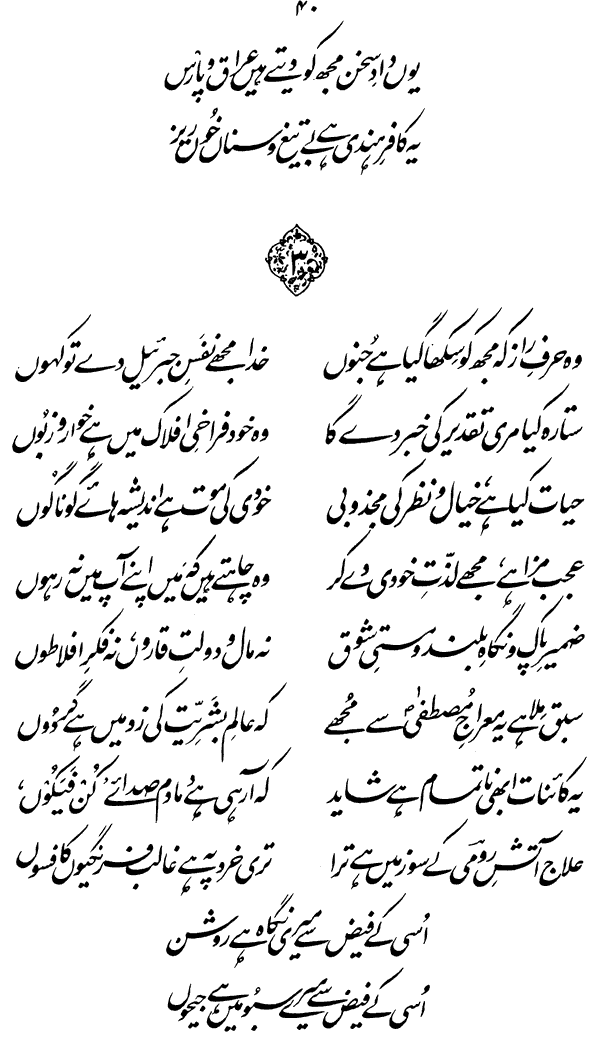 ۴۰
یوں دادِ سخن مجھ کو دیتے ہیں عراق و پارس
یہ کافرِ ہندی ہے بے تیغ و سناں خوں ریز
۳
وہ حرفِ راز کہ مجھ کو سکھا گیا ہے جنوں خدا مجھے نفَسِ جبرئیل دے تو کہوں
ستارہ کیا مری تقدیر کی خبر دے گا وہ خود فراخیِ افلاک میں ہے خوار و زبوں
حیات کیا ہے، خیال و نظر کی مجذوبی خودی کی موت ہے اندیشہ ہائے گوناگوں
عجب مزا ہے، مجھے لذّتِ خودی دے کر وہ چاہتے ہیں کہ مَیں اپنے آپ میں نہ رہوں
ضمیرِ پاک و نگاہِ بلند و مستیِ شوق نہ مال و دولتِ قاروں، نہ فکرِ افلاطوں
سبق مِلا ہے یہ معراجِ مُصطفیٰؐ سے مجھے کہ عالمِ بشَرِیّت کی زد میں ہے گردُوں
یہ کائنات ابھی ناتمام ہے شاید کہ آ رہی ہے دمادم صدائے ’کُنْ فَیَکُوْں‘
علاج آتشِ رومیؔ کے سوز میں ہے ترا تری خرد پہ ہے غالب فرنگیوں کا فسوں
اُسی کے فیض سے میری نگاہ ہے روشن
اُسی کے فیض سے میرے سبُو میں ہے جیحوں